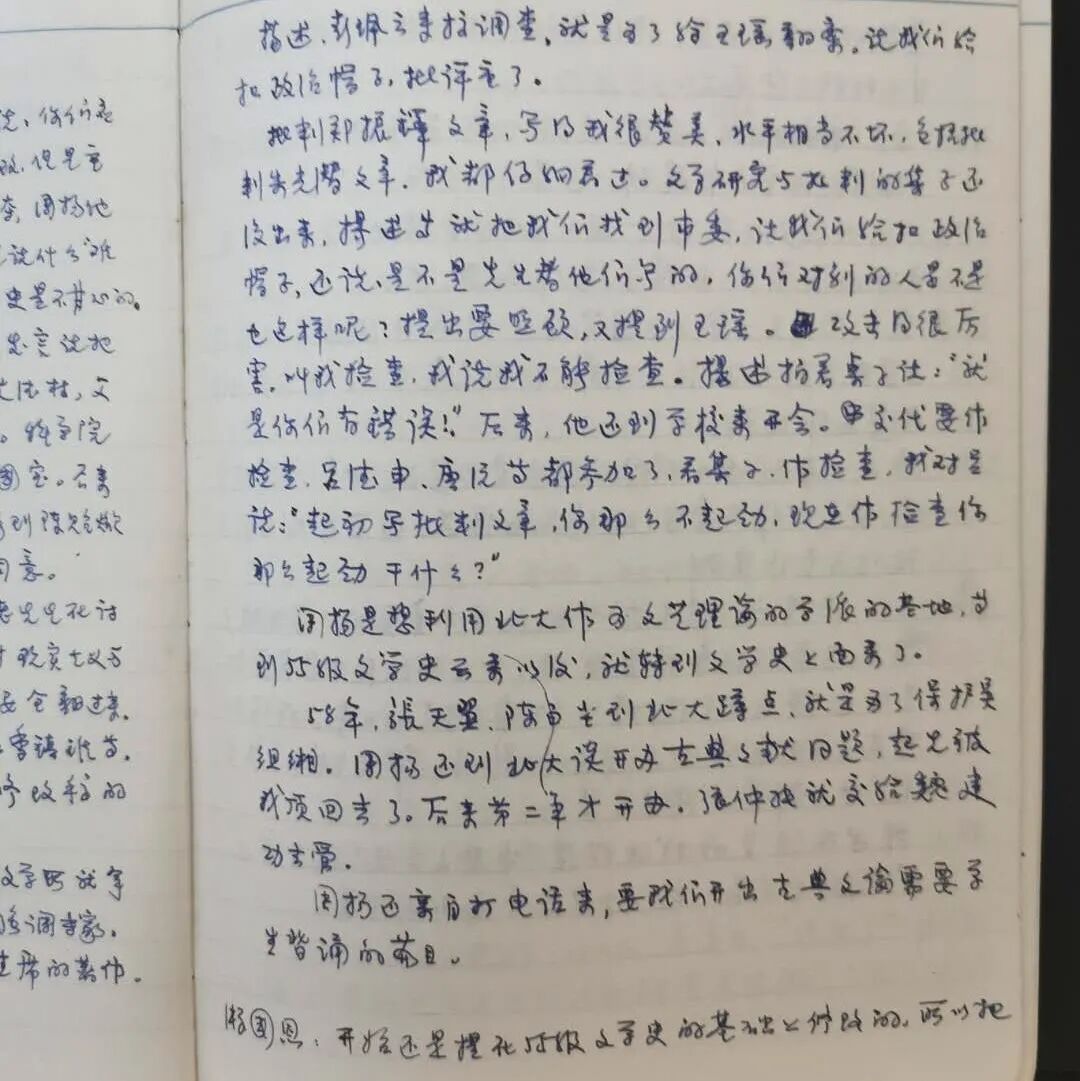 说、你们
改,但是
周扬他
说什么
史是不甘心的。
忠言说把
。科学院
国家。后来
同意。
先生死讨
现实主义与
全翻过来。
修改稿的
文学所就拿
调专家。
主席的著作。
描述、彭珮云来校调查,就是为了给王瑶翻案。说我们给
扣政治帽子,批评重了。
批判郑振铎文章,写的我很赞美,水平相当不坏,包括批
判朱光潜文章,我都仔细看过。文学研究与批判的集子还
没出来,杨述等就把我们找到市委,说我们给扣政治
帽子,还说:是不是先生替他们写的,你们对别的人是不是
也这样呢?提出要照顾,又提到王瑶。攻击的很厉
害,叫我检查,我说我不能检查。杨述拍着桌子说:“就
是你们有错误!”后来,他还到学校来开会。交代要作
检查,吕德申、唐沅等都参加了,看集子,作检查,我对吕
说:“起初写批判文章,你那么不起劲,现在作检查你
那么起劲干什么?”
周扬是想利用北大作为文艺理论的学派的基地,等
到55级文学史出来以后,就转到文学史上面来了。
58年,張天翼、陈白尘到北大蹲点,就是为了保护吴
组缃。周扬还到北大谈开办古典文献问题,起先被
我顶回去了。后来第二年才开办,就交给魏建
功去管。
周扬还亲自打电话来,要我们开出古典文论需要学
生背诵的篇目。
游国恩:开始还是提在55级文学史的基础上修改的,所以把